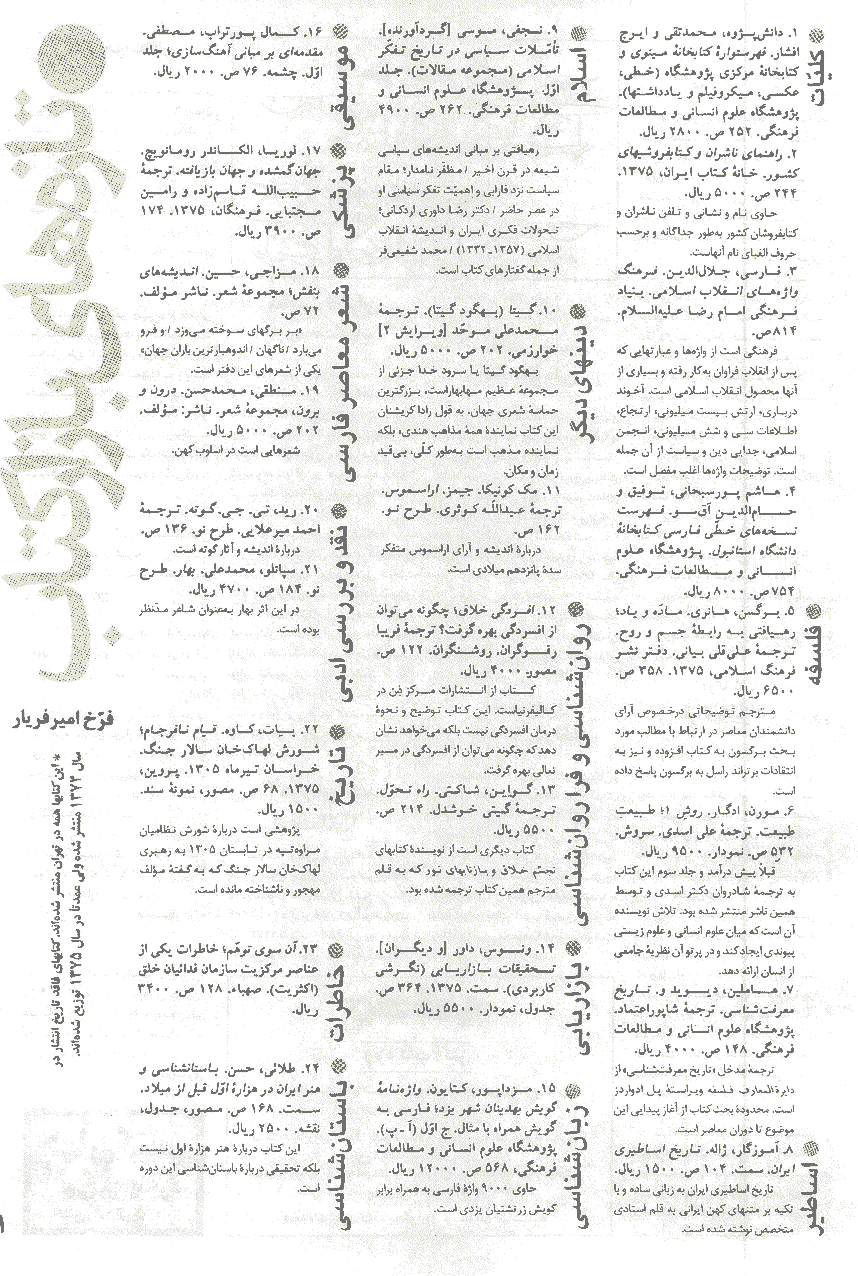 تازه‌های بازار کتاب
فرّخ امیرفریار
* این کتابها همه در تهران منتشر شده‌اند. کتابهای فاقد تاریخ انتشار در
سال ۱۳۷۴ منتشر شده ولی عمدتا در سال ۱۳۷۵ توزیع شده‌اند.
کلیّات
۱. دانش‌پژوه، محمدتقی و ایرج
افشار. فهرستوارهٔ کتابخانهٔ مینوی و
کتابخانهٔ مرکزی پژوهشگاه (خطی،
عکسی، میکروفیلم و یادداشتها).
پژوهشگاه علوم انسانی و مطالعات
فرهنگی. ۲۵۲ ص. ۲۸۰۰ ریال.
۲. راهنمای ناشران و کتابفروشیهای
کشور. خانهٔ کتاب ایران، ۱۳۷۵.
۲۴۴ ص. ۵۰۰۰ ریال.
حاوی نام و نشانی و تلفن ناشران و
کتابفروشان کشور به‌طور جداگانه و برحسب
حروف الفبای نام آنهاست.
۳. فارسی، جلال‌الدین. فرهنگ
واژه‌های انقلاب اسلامی. بنیاد
فرهنگی امام رضا علیه‌السلام.
۸۱۴ص.
فرهنگی است از واژه‌ها و عبارتهایی که
پس از انقلاب فراوان به‌کار رفته و بسیاری از
آنها محصول انقلاب اسلامی است. آخوند
درباری، ارتش بیست میلیونی، ارتجاع،
اطلاعات سی و شش میلیونی، انجمن
اسلامی، جدایی دین و سیاست از آن جمله
است. توضیحات واژه‌ها اغلب مفصل است.
۴. هاشم پورسبحانی، توفیق و
حسام‌الدین آق‌سو. فهرست
نسخه‌های خطّی فارسی کتابخانهٔ
دانشگاه استانبول. پژوهشگاه علوم
انسانی و مطالعات فرهنگی.
۷۵۴ ص. ۸۰۰۰ ریال.
فلسفه
۵. برگسن، هانری. مادّه و یاد؛
رهیافتی به رابطهٔ جسم و روح.
ترجمهٔ علی‌قلی بیانی. دفتر نشر
فرهنگ اسلامی، ۱۳۷۵. ۳۵۸ ص.
۶۵۰۰ ریال.
مترجم توضیحاتی درخصوص آرای
دانشمندان معاصر در ارتباط با مطالب مورد
بحث برگسون به کتاب افزوده و نیز به
انتقادات برتراند راسل به برگسون پاسخ داده
است.
۶. مورن، ادگار. روش ۱؛ طبیعت
طبیعت. ترجمهٔ علی اسدی. سروش.
۵۳۲ ص. نمودار. ۹۵۰۰ ریال.
قبلاً پیش درآمد و جلد سوم این کتاب
به ترجمهٔ شادروان دکتر اسدی و توسط
همین ناشر منتشر شده بود. تلاش نویسنده
آن است که میان علوم انسانی و علوم زیستی
پیوندی ایجاد کند و در پرتو آن نظریهٔ جامعی
از انسان ارائه دهد.
۷. هاملین، دیوید و. تاریخ
معرفت‌شناسی. ترجمهٔ شاپور اعتماد.
پژوهشگاه علوم انسانی و مطالعات
فرهنگی. ۱۴۸ ص. ۴۰۰۰ ریال.
ترجمهٔ مدخل «تاریخ معرفت‌شناسی» از
دایرةالمعارف فلسفه ویراستهٔ پل ادواردز
است. محدودهٔ بحث کتاب از آغاز پیدایی این
موضوع تا دوران معاصر است.
اساطیر
۸. آموزگار، ژاله. تاریخ اساطیری
ایران. سمت. ۱۰۴ ص. ۱۵۰۰ ریال.
تاریخ اساطیری ایران به زبانی ساده و با
تکیه بر متنهای کهن ایرانی به قلم استادی
متخصص نوشته شده است.
اسلام
۹. نجفی، موسی [گردآورنده].
تأملات سیاسی در تاریخ تفکّر
اسلامی (مجموعه مقالات). جلد
اوّل. پژوهشگاه علوم انسانی و
مطالعات فرهنگی. ۲۶۲ ص. ۴۹۰۰
ریال.
رهیافتی بر مبانی اندیشه‌های سیاسی
شیعه در قرن اخیر / مظفّر نامدار؛ مقام
سیاست نزد فارابی و اهمیّت تفکر سیاسی او
در عصر حاضر / دکتر رضا داوری اردکانی؛
تحولات فکری ایران و اندیشهٔ انقلاب
اسلامی (۱۳۵۷ـ۱۳۳۲) / محمد شفیعی‌فر
از جمله گفتارهای کتاب است.
دینهای دیگر
۱۰. گیتا (بهگود گیتا). ترجمهٔ
محمدعلی موحّد [ویرایش ۲]
خوارزمی. ۲۰۲ ص. ۵۰۰۰ ریال.
بهگود گیتا یا سرود خدا جزئی از
مجموعهٔ عظیم مهابهارات، بزرگترین
حماسهٔ شعری جهان. به قول رادا کریشنان
این کتاب نمایندهٔ همهٔ مذاهب هندی، بلکه
نمایندهٔ مذهب است به‌طور کلّی، بی‌قید
زمان و مکان.
۱۱. مک کونیکا. جیمز. اراسموس.
ترجمهٔ عبداللّه کوثری. طرح نو.
۱۶۲ ص.
دربارهٔ اندیشه و آرای اراسموس متفکر
سدهٔ پانزدهم میلادی است.
روان‌شناسی و فراروان‌شناسی
۱۲. افسردگی خلاق؛ چگونه می‌توان
از افسردگی بهره گرفت؟ ترجمهٔ فریبا
رفوگران. روشنگران. ۱۲۲ ص.
مصور. ۴۰۰۰ ریال.
کتاب از انتشارات مرکز ذِن در
کالیفرنیاست. این کتاب توضیح و نحوهٔ
درمان افسردگی نیست بلکه می‌خواهد نشان
دهد که چگونه می‌توان از افسردگی در مسیر
تعالی بهره گرفت.
۱۳. گواین، شاکتی. راه تحوّل.
ترجمهٔ گیتی خوشدل. ۲۱۴ ص.
۵۵۰۰ ریال.
کتاب دیگری است از نویسندهٔ کتابهای
تجسّم خلاق و بازتابهای نور که به قلم
مترجم همین کتاب ترجمه شده بود.
بازاریابی
۱۴. ونوس، داور [و دیگران].
تحقیقات بازاریابی (نگرشی
کاربردی). سمت. ۱۳۷۵. ۳۶۴ ص.
جدول، نمودار. ۵۵۰۰ ریال.
زبان‌شناسی
۱۵. مزداپور، کتایون. واژه‌نامهٔ
گویش بهدینان شهر یزد؛ فارسی به
گویش همراه با مثال. ج اوّل (آ ـ پ).
پژوهشگاه علوم انسانی و مطالعات
فرهنگی، ۵۶۸ ص. ۱۲۰۰۰ ریال.
حاوی ۹۰۰۰ واژهٔ فارسی به همراه برابر
گویش زرتشتیان یزدی است.
موسیقی
۱۶. کمال پورتراب، مصطفی.
مقدمه‌ای بر مبانی آهنگ‌سازی؛ جلد
اوّل. چشمه. ۷۶ ص. ۲۰۰۰ ریال.
پزشکی
۱۷. لوریا، الکساندر رومانویچ.
جهان گمشده و جهان بازیافته. ترجمهٔ
حبیب‌الله قاسم‌زاده و رامین
مجتبایی. فرهنگان، ۱۳۷۵. ۱۷۴
ص. ۳۹۰۰ ریال.
شعر معاصر فارسی
۱۸. مزاجی، حسین. اندیشه‌های
بنفش؛ مجموعهٔ شعر. ناشر مؤلف.
۷۲ ص.
«بر برگهای سوخته می‌وزد / و فرو
می‌بارد / ناگهان / اندوهبارترین باران جهان»
یکی از شعرهای این دفتر است.
۱۹. منطقی، محمدحسن. درون و
برون، مجموعهٔ شعر. ناشر: مؤلف.
۲۰۲ ص. ۵۰۰۰ ریال.
شعرهایی است در اسلوب کهن.
نقد و بررسی ادبی
۲۰. رید، تی. جی. گوته. ترجمهٔ
احمد میرعلایی. طرح نو. ۱۳۶ ص.
دربارهٔ اندیشه و آثار گوته است.
۲۱. سپانلو، محمدعلی. بهار. طرح
نو. ۱۸۴ ص. ۴۷۰۰ ریال.
در این اثر بهار به‌عنوان شاعر مدّنظر
بوده است.
تاریخ
۲۲. بیات، کاوه. قیام نافرجام؛
شورش لهاک‌خان سالار جنگ.
خراسان تیرماه ۱۳۰۵. پروین،
۱۳۷۵. ۶۸ ص. مصور، نمونهٔ سند.
۱۵۰۰ ریال.
پژوهشی است دربارهٔ شورش نظامیان
مراوه‌تپه در تابستان ۱۳۰۵ به رهبری
لهاک‌خان سالار جنگ که به گفتهٔ مؤلف
مهجور و ناشناخته مانده است.
خاطرات
۲۳. آن سوی توهّم؛ خاطرات یکی از
عناصر مرکزیت سازمان فدائیان خلق
(اکثریت). صهباء. ۱۲۸ ص. ۳۴۰۰
ریال.
باستان‌شناسی
۲۴. طلائی، حسن. باستانشناسی و
هنر ایران در هزارهٔ اوّل قبل از میلاد.
سمت. ۱۶۸ ص. مصور، جدول،
نقشه. ۲۵۰۰ ریال.
این کتاب دربارهٔ هنر هزارهٔ اول نیست
بلکه تحقیقی دربارهٔ باستان‌شناسی این دوره
است.